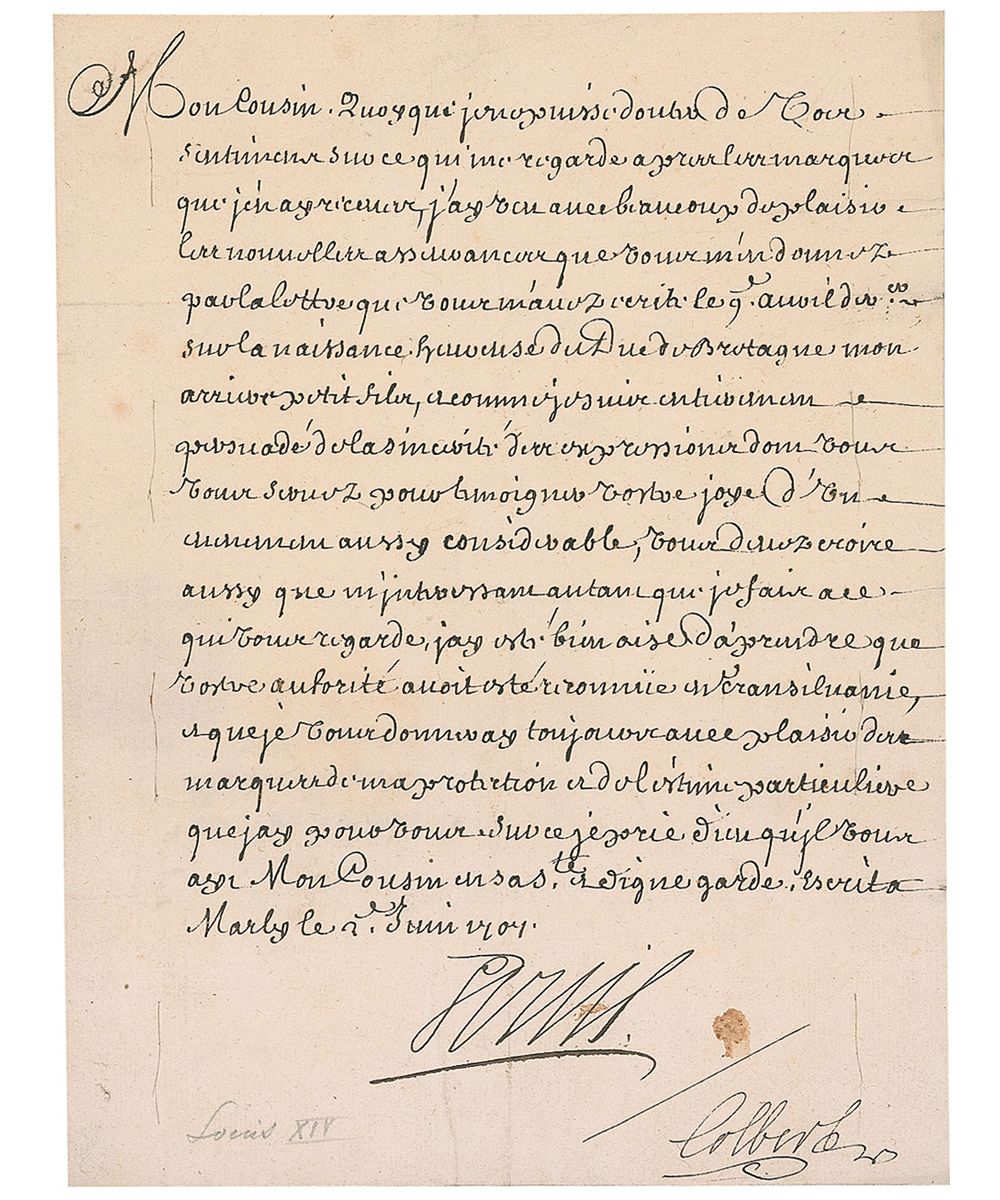 Mon Cousin. Quoyque je ne puisse douter de vos
sentimens sur ce qui me regarde apres les marques
que j'en ay receues, j'ay veu avec beaucoup de plaisir
les nouvelles asseurances que vous m'en donnez
par la lettre que vous m'avez ecrite le 9.e avril der.er
sur la naissance heureuse du Duc de Bretagne mon
arriere petit fils, et comme je suis entierement
persuadé de la sincerité des expressions dont vous
vous servez pour temoigner vostre joye d'un
evenement aussy considerable, vous devez croire
aussy que m'jnteressant autant que je fais a ce
qui vous regarde, jay esté bien aise d'aprendre que
vostre autorité avoit esté reconnüe en Transilvanie,
et que je vous donneray toujours avec plaisir des
marques de ma protection et de l'estime particuliere
que jay pour vous. Sur ce je prie Dieu qu'jl vous
aye Mon Cousin en sa s.te et digne garde. Escrit a
Marly le 2.e Juin 1707.
Louis.
Colbert
Louis XIV